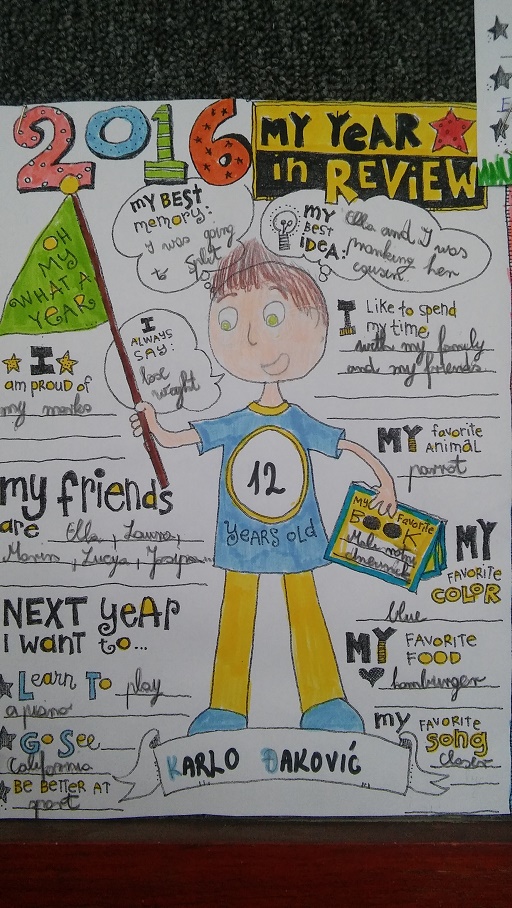 2016
MY YEAR
in REVIEW
OH
MY
WHAT A
YEAR
MY BEST
memory:
I was going
to Split
MY
BEST
IDEA:
Ella and I was
pranking her
cousin
I
ALWAYS
SAY:
lose
weight
I
am proud of
my marks
I Like to spend
my time
with my family
and my friends
MY favorite
ANIMAL
parrot
my friends
are Ella, Laura,
Lucija, Josipa
12
YEARS old
My Favorite
BOOK
MY
FAVORITE
COLOR
blue
NEXT YEAR
I want to...
Learn To play
a piano
Go See
California
BE BETTER AT
sport
MY FAVORITE
FOOD
hamburger
my FAVORITE
song
Closer
KARLO ĐAKOVIĆ